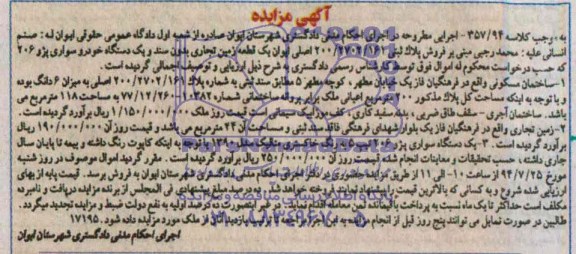 آگهی مزایده
به موجب کلاسه ۳۵۷/۹۴- اجرایی مطروحه در اجرای احکام مدنی دادگستری شهرستان ایوان صادره از شعبه اول دادگاه عمومی حقوقی ایوان له : صنم
انسانی علیه : محمد رجبی مبنی بر فروش پلاک ثبتی ۲۷۰۲/۱۶۱/ ۲۰۰ اصلی ایوان یک قطعه زمین تجاری بدون سند و یک دستگاه خودرو سواری پژو ۲۰۶
که حسب درخواست محکوم له اموال فوق توسط کارشناس رسمی دادگستری به شرح ذیل ارزیابی و توصیف اجمالی گردیده است.
۱-ساختمان مسکونی واقع در فرهنگیان فاز یک خیابان مطهر ، کوچه مطهر ۵ مطابق سند ثبتی به شماره پلاک ۲۰۰/۲۷۰۲/۱۶۱ اصلی به میزان ۶ دانگ بوده
و با توجه به اینکه مساحت کل پلاک مذکور ۲۰۰ مترمربع اعیانی ملک برابر پروانه ساختمانی شماره ۱۳۸۲-۷۷/۱۲/۲۶ به مساحت ۱۱۸ مترمربع می
باشد. ساختمان آجری - سقف طاق ضربی ، بدنه سفید کاری ، کف موزائیک سیمانی است قیمت روز ملک ۱/۱۵۰/۰۰۰/۰۰۰ ریال برآورد گردیده است.
۲-زمین تجاری واقع در فرهنگیان فاز یک بلوار شهدای فرهنگی فاقد سند ثبتی و مساحت آن ۲۴ مترمربع می باشد و قیمت روز آن ۱۹۰/۰۰۰/۰۰۰ ریال
برآورد گردیده است . ۳-یک دستگاه سواری پژو ۲۰۶ تیپ به رنگ خاکستری متالیک مدل با توجه به اینکه کاپوت رنگ داشته و بیمه تا پایان سال
جاری داشته ، حسب تحقیقات و معاینات انجام شده قیمت روز آن ۲۵۰/۰۰۰/۰۰۰ ریال برآورد گردیده است . مقرر گردید اموال موصوف در روز شنبه
۹۴/۷/۲۵ از ساعت ۱۰- الی ۱۱ از طریق مزایده حضوری در دفتر اجرای احکام مدنی دادگستری شهرستان ایوان به فروش برسد. قیمت پایه از بهای
ارزیابی شده شروع و به کسانی که بالاترین قیمت را پیشنهاد نمایند فروخته خواهد شد. ده درصد مبلغ پیشنهادی فی المجلس از برنده مزایده دریافت و نامبرده
مکلف است حداکثر تا یک ماه نسبت به پرداخت باقیمانده ثمن معامله اقدام نماید. در غیر اینصورت ده درصد اولیه به نفع دولت ضبط و مزایده تجدید میگردد.
طالبین در صورت تمایل می توانند پنج روز قبل از انجام مزایده به این اجرا مراجعه تا ترتیب بازدید آنان از ملک مورد مزایده داده شود . ۱۷۱۹۵
اجرای احکام مدنی دادگستری شهرستان ایوان